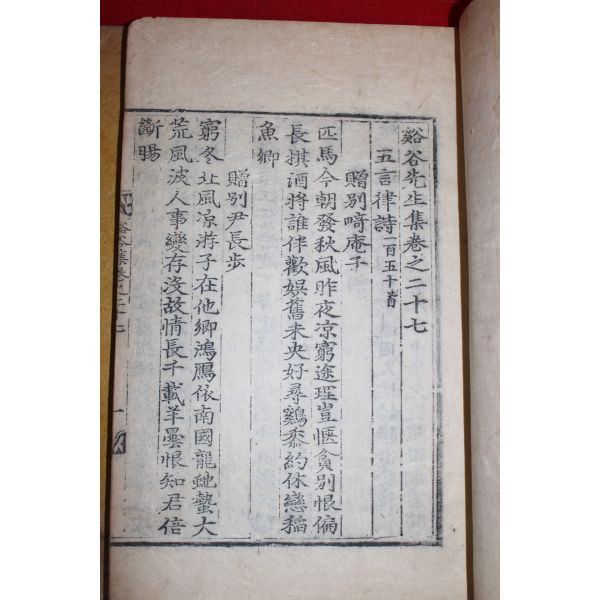 谿谷先生集卷之二十七
五言律詩一百五十首
贈別畸庵子
匹馬今朝發秋風昨夜凉窮途理豈愜貧別恨偏
長棋酒將誰伴歡娛舊未央好尋鷄黍約休戀稻
魚鄕
贈別尹長步
窮冬北風凉游子在他鄕鴻鴈依南國龍蛇蟄大
荒風波人事變存沒故情長千載羊曇恨知君倍
斷腸
谿谷集卷之二十七
一